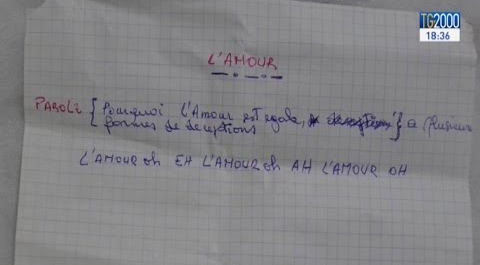 TG2000
18:36
L'AMOUR
PAROLE { Pourquoi L'Amour est egale, } a plusieurs
formes de deceptions
L'AMOUR oh EH L'AMOUR oh AH L'AMOUR OH